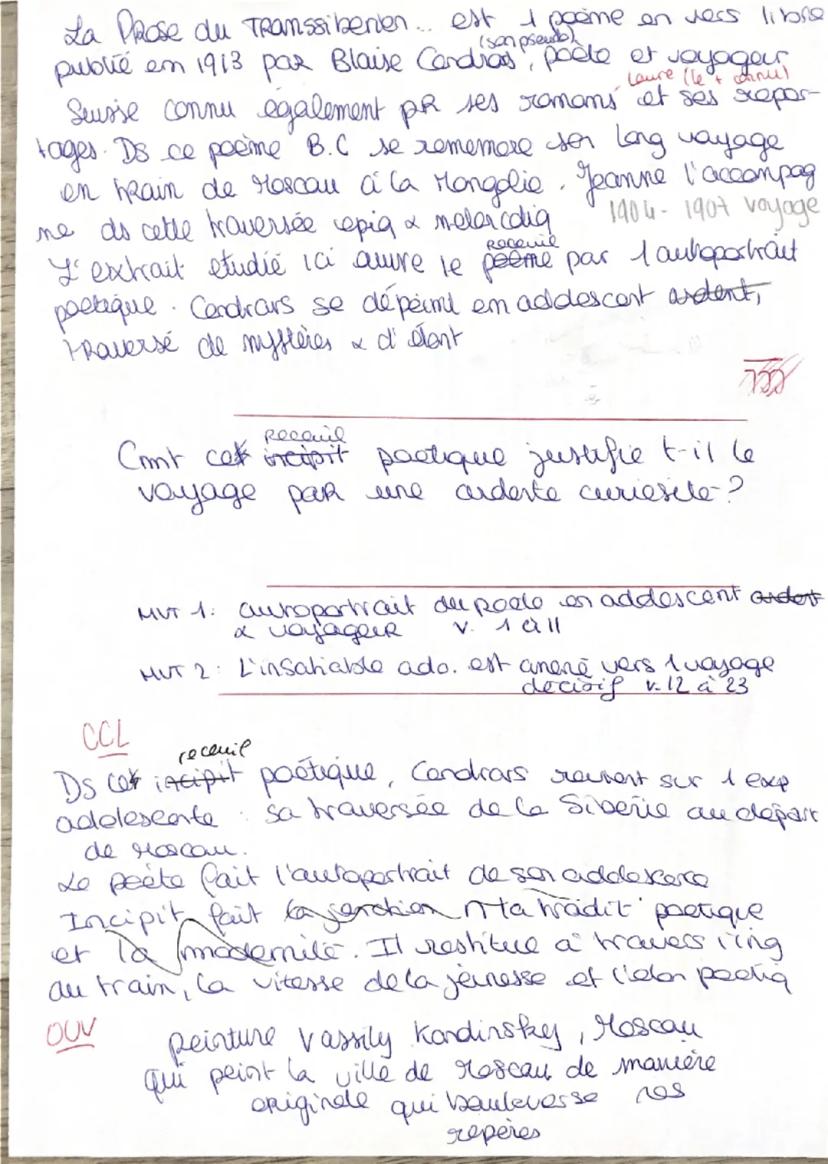 La Prose du Transsiberien... est 1 poème en vers libre
(son pseudo)
publié en 1913 par Blaise Cendrars, poète et voyageur
(le + connu)
Suisse connu également pR ses romans et ses repor-
tages. Ds ce poème B.C se rememore son long voyage
en train de Moscau à la Mongolie. Jeanne l'accompag
ne ds cette traversée epiq & melancoliq
1904 - 1907 voyage
receuil
L'extrait etudié ici ouvre le poème par 1 autoportrait
poetique. Cendrars se dépeint en addescent ardent,
traversé de mystères & d'élant
Cmt cet receuil incipit poetique justifie t-il le
voyage par une ardente curiosité ?
MVT 1: autoportrait du poete en addescent ardent
& voyageur v. 1 à 11
MVT 2: L'insatiable ado. est amené vers 1 voyage
decisif v. 12 à 23
CCL
receuil
Ds cet incipit poétique, Cendrars revient sur 1 exp
adolescente : sa traversée de la Siberie au départ
de Moscau.
Le poète fait l'autoportrait de son addescence
Incipit fait la jonction la tradit° poetique
et la modernité. Il restitue à travers
au train, la vitesse de la jeunesse et l'elan poetiq
OUV
peinture Vassily Kandinsky, Moscau
qui peint la ville de Moscau de manière
originale qui bouleverse nos
repères